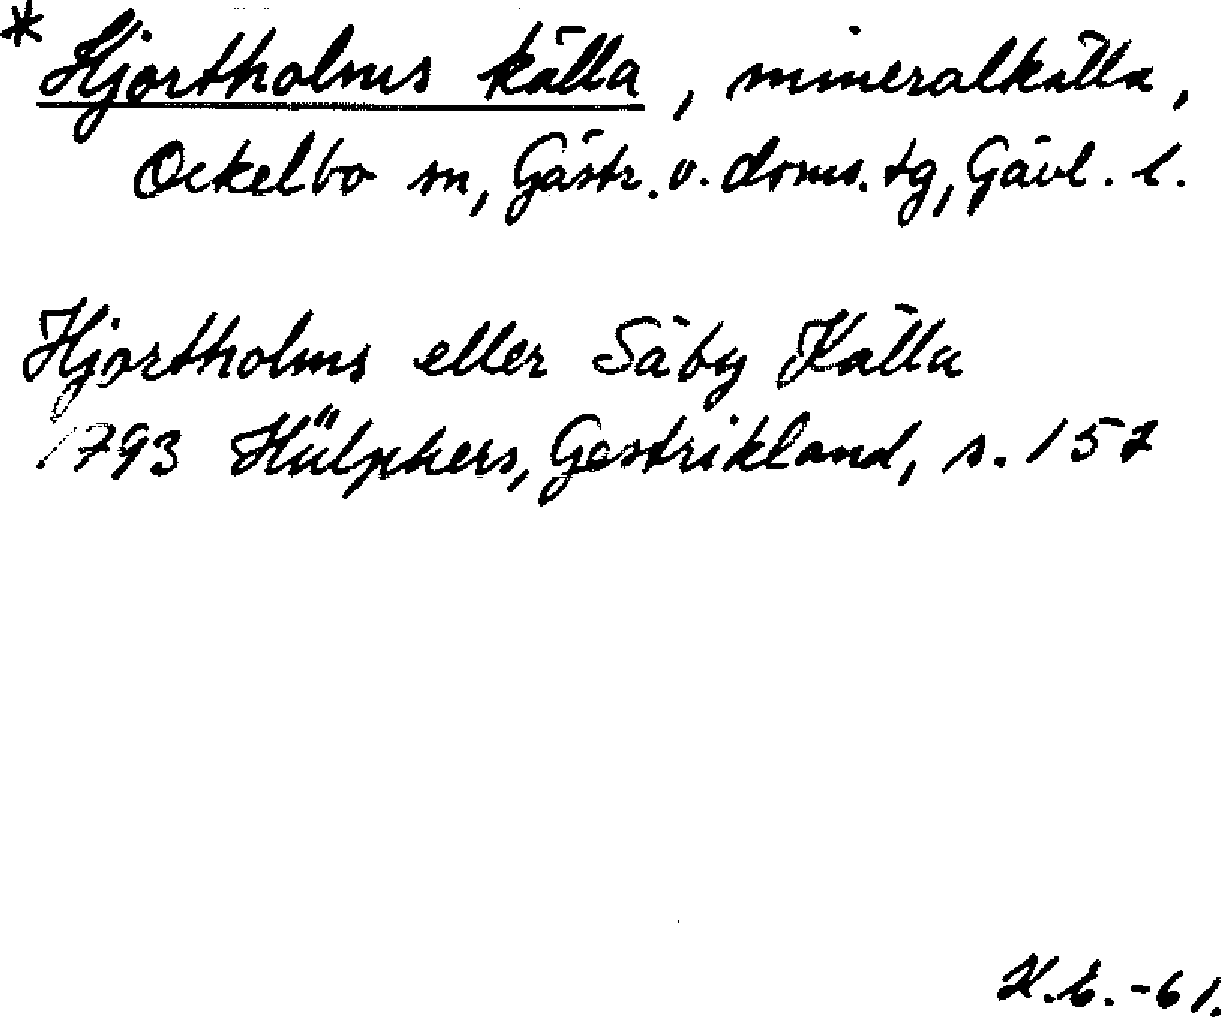 * Hjortholms källa, mineralkälla,
Ockelbo sn, Gästr. v. doms. tg, Gävl. l.
Hjortholms eller Säby Källa
1793 Hülphers, Gestrikland, s. 157
K.E. -61.